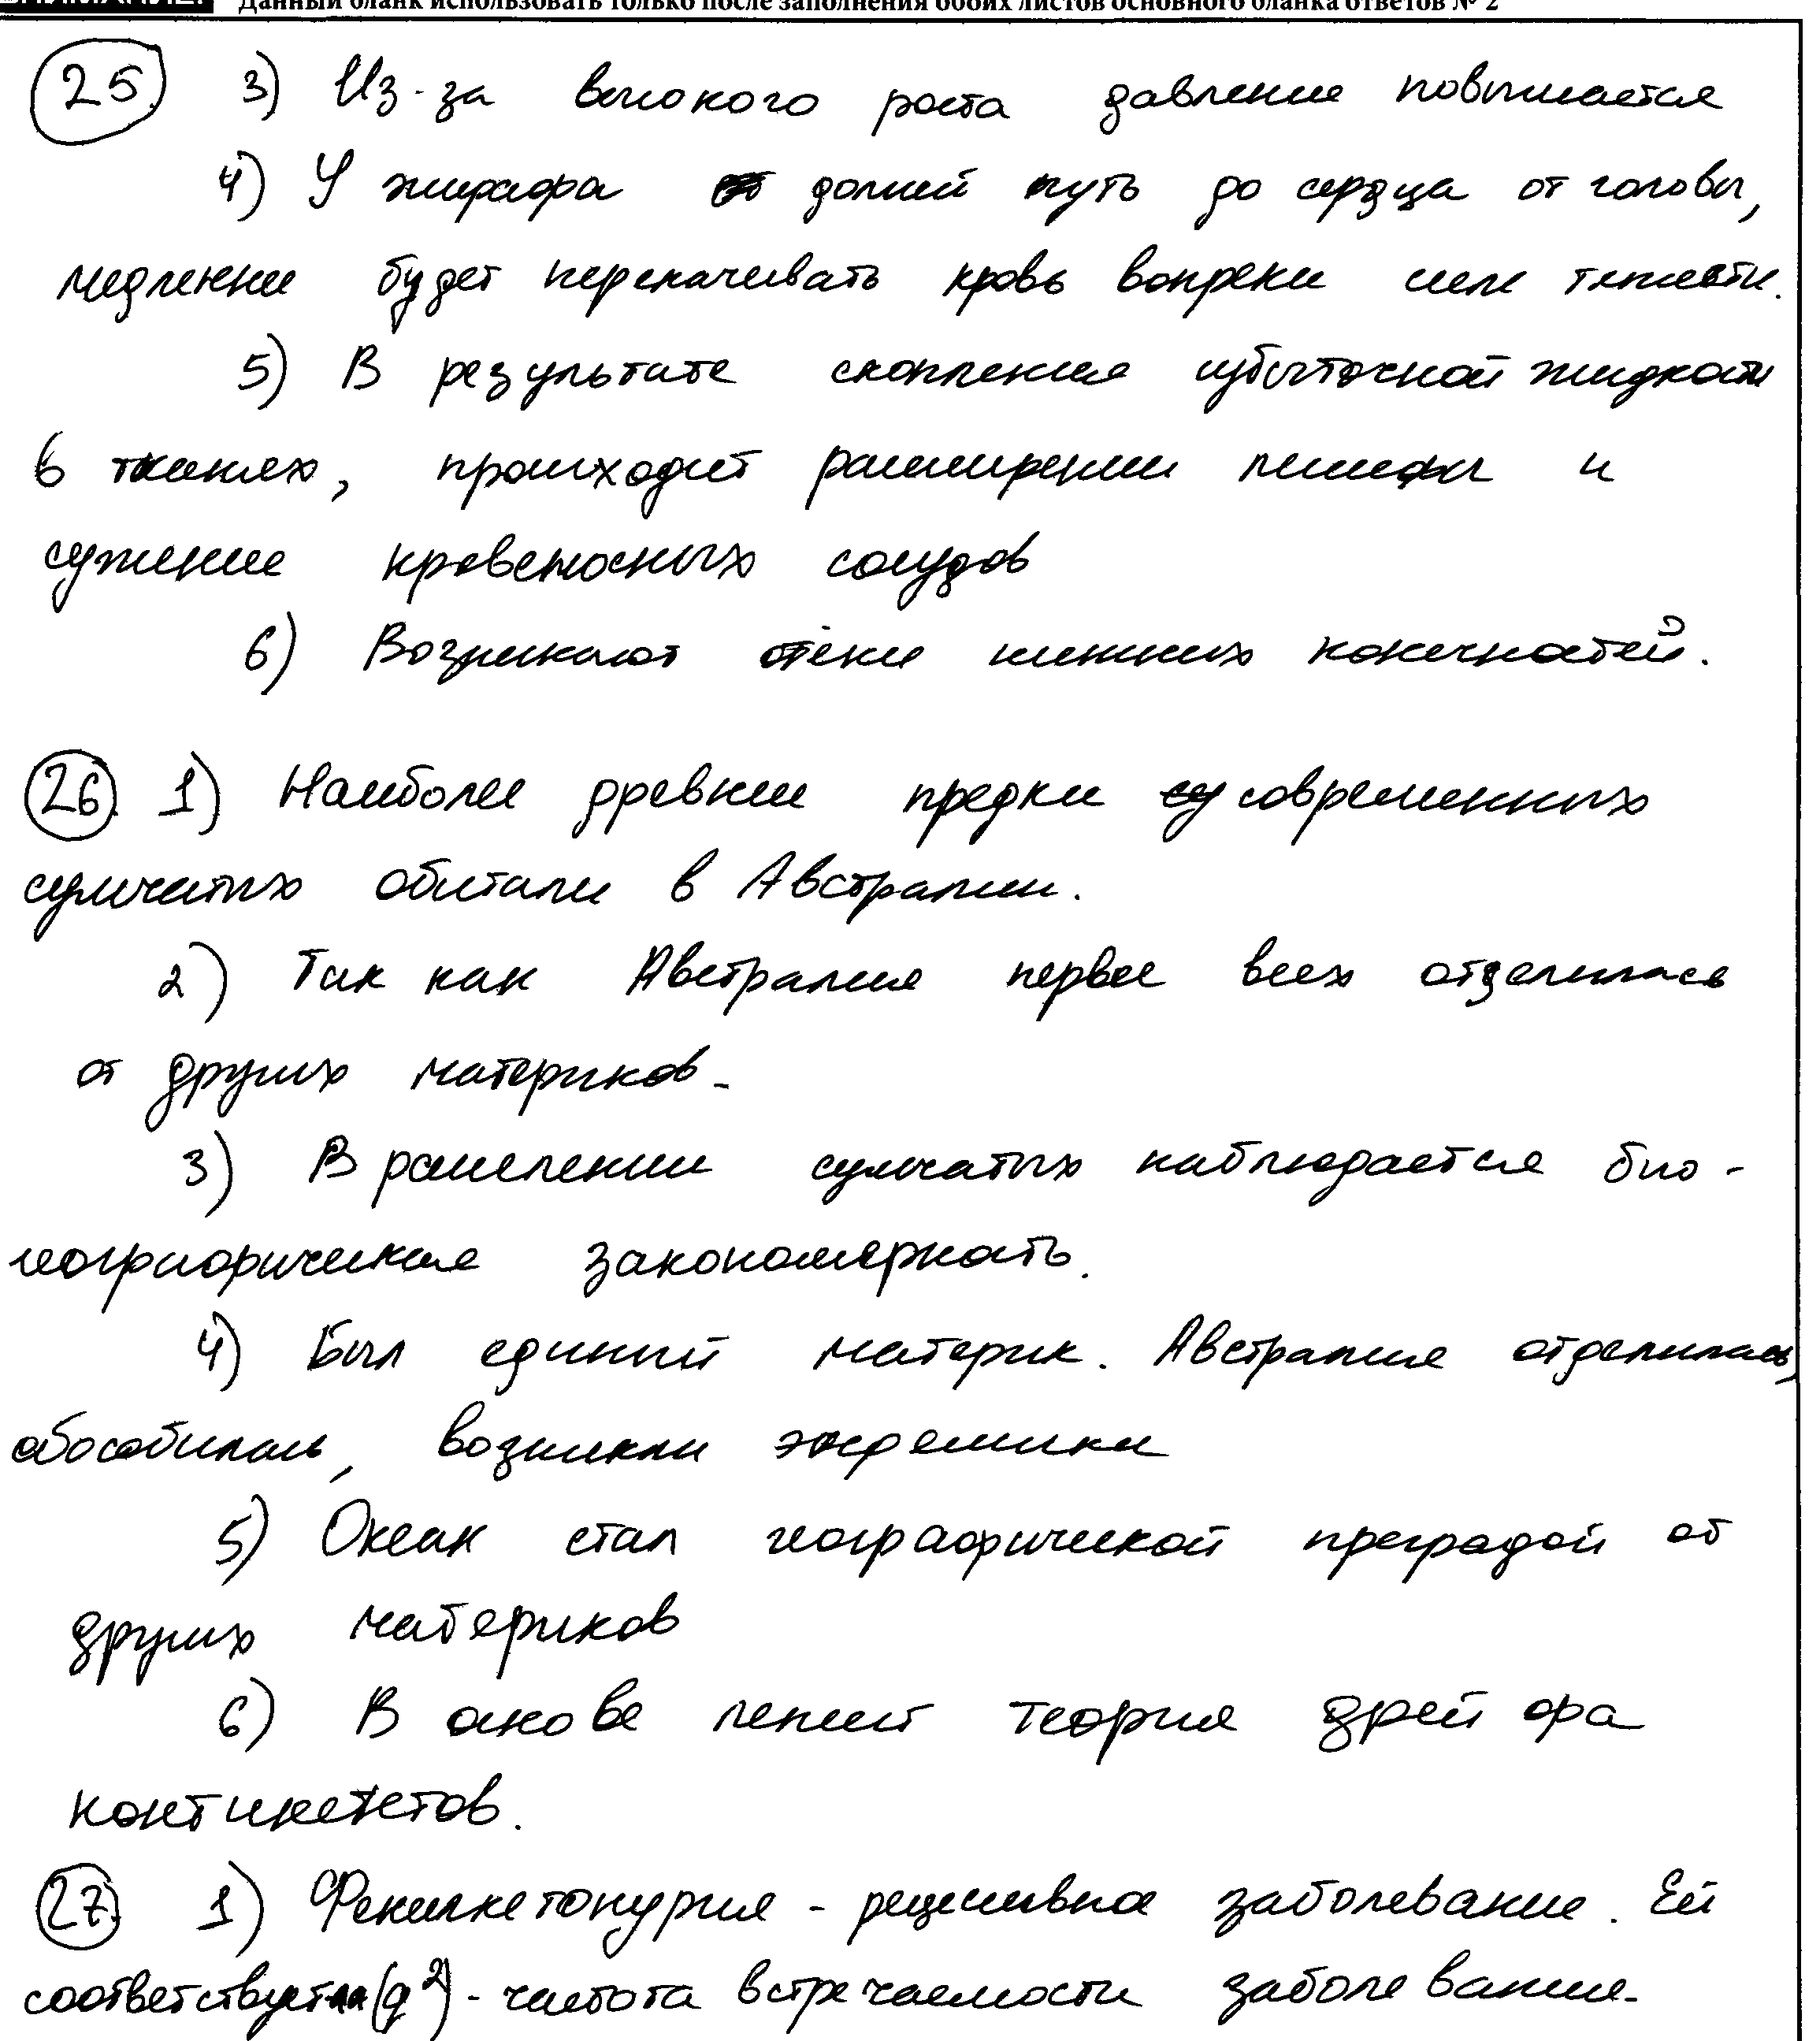 Данный бланк использовать только после заполнения обоих листов основного бланка ответов № 2
25 3) Из-за высокого роста давление повышается
4) У жирафа долгий путь до сердца от головы,
медленнее будет перекачивать кровь вопреки силе тяжести.
5) В результате скопления избыточной жидкости
в тканях, происходит расширении лимфы и
сужение кровеносных сосудов
6) Возникают отёки нижних конечностей.
26 1) Наиболее древние предки современных
сумчатых обитали в Австралии.
2) Так как Австралия первее всех отделилась
от других материков.
3) В расселении сумчатых наблюдается био-
географическая закономерность.
4) Был единый материк. Австралия отделилась,
обособилась, возникли эндемики
5) Океан стал географической преградой от
других материков
6) В основе лежит теория дрейфа
континентов.
27 1) Фенилкетонурия - рецессивное заболевание. Ей
соответствует (q²) - частота встречаемости заболевание.